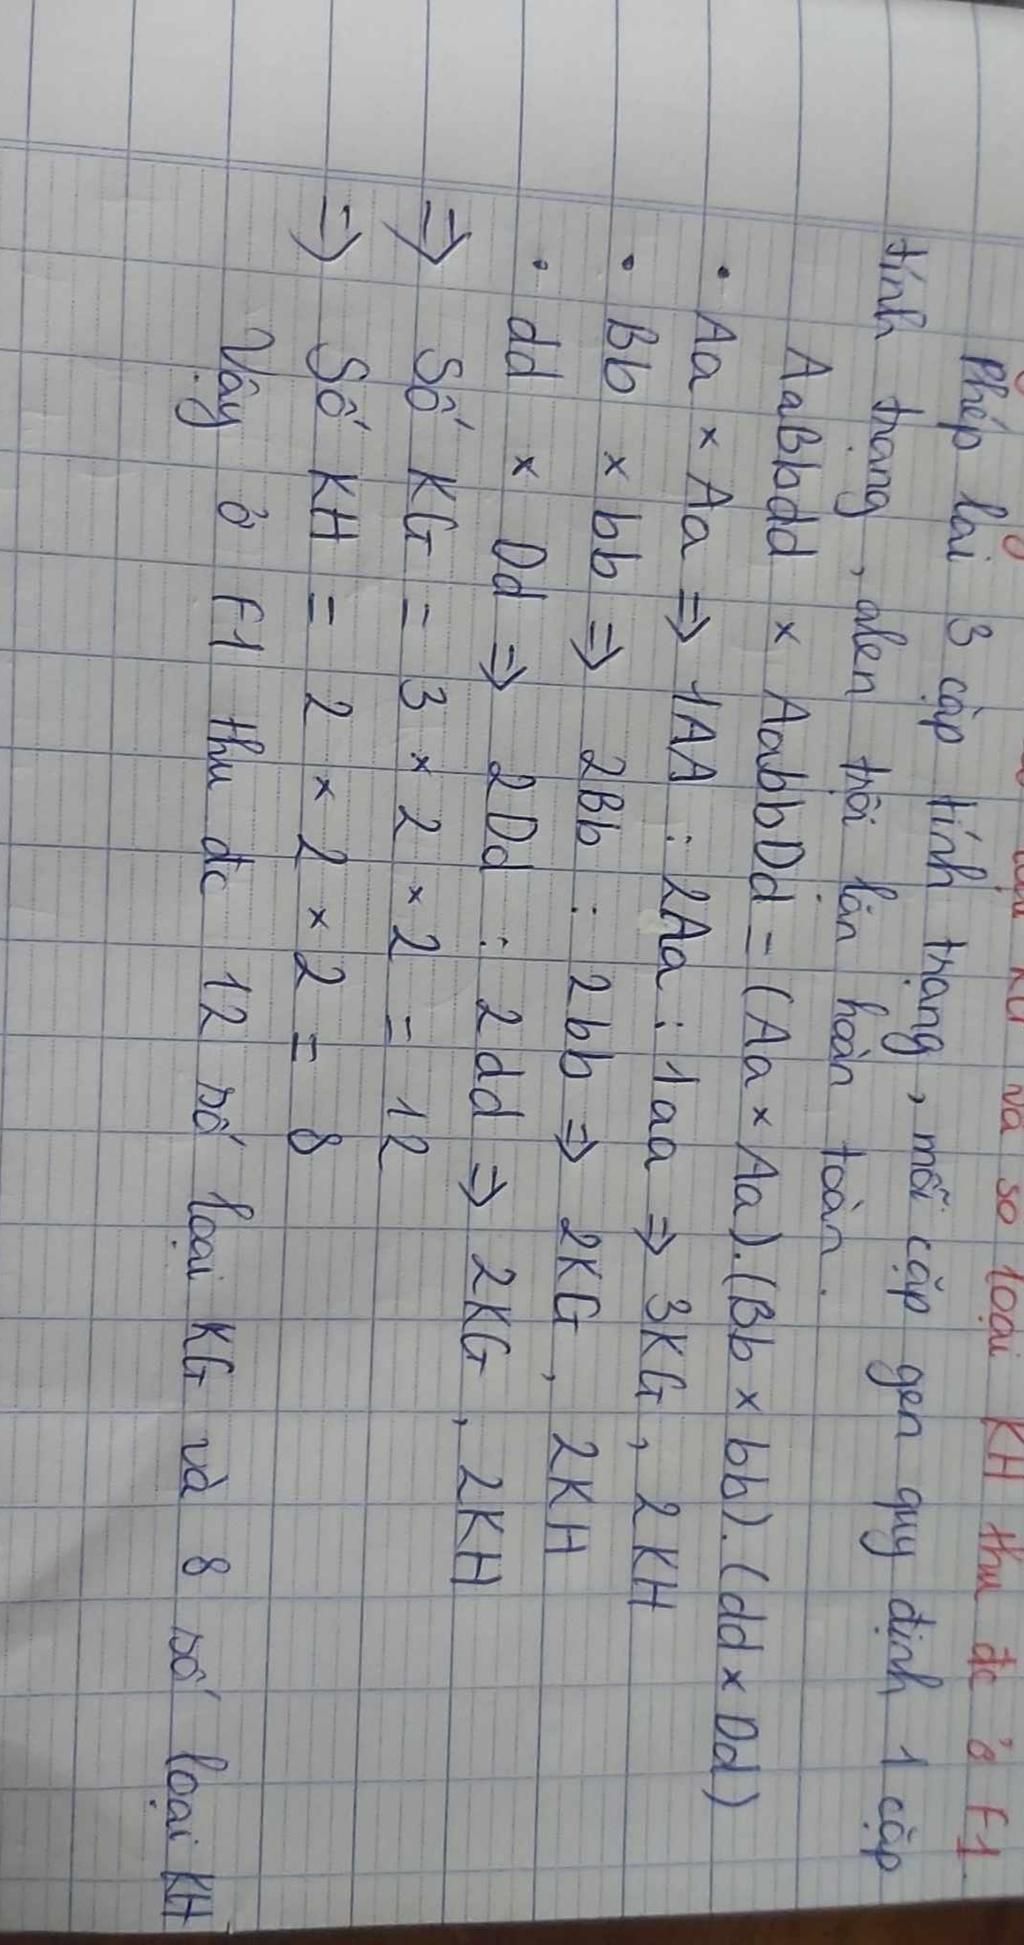 loại KG và số loại KH thu đc ở F1.
Phép lai 3 cặp tính trạng, mỗi cặp gen quy định 1 cặp
tính trạng, alen trội lặn hoàn toàn.
AaBbdd × AabbDd = (Aa × Aa).(Bb × bb).(dd × Dd)
• Aa × Aa ⇒ 1AA : 2Aa : 1aa ⇒ 3KG, 2KH
• Bb × bb ⇒ 2Bb : 2bb ⇒ 2KG, 2KH
• dd × Dd ⇒ 2Dd : 2dd ⇒ 2KG, 2KH
⇒ Số KG = 3 × 2 × 2 = 12
⇒ Số KH = 2 × 2 × 2 = 8
Vậy ở F1 thu đc 12 số loại KG và 8 số loại KH